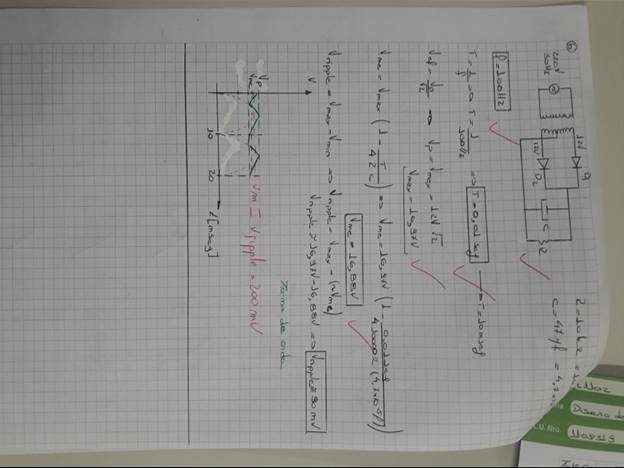 6)
220V
50Hz
12V
12V
D2
C
R
R = 10k
C = 47μf = 4,7x10
f = 100Hz
T = 1/f => T = 1/100Hz => T = 0,01seg => T = 10mseg
Vef = Vp/√2 => Vp = Vmax = 12V √2
Vmax = 16,97V
Vmc = Vmax (1 - T/4RC) => Vmc = 16,97V (1 - 0,01seg/4.10000Ω(4,7x10-5f))
Vmc = 16,88V
Vripple = Vmax - Vmin => Vripple = Vmax - (Vmc)
Vripple = 16,97V - 16,88V => Vripple = 90mV
Forma de onda
V
Vp
Vmc
Vm = Vripple = 200mV
10
20
t[mseg]
Diseño
LU. Nro.